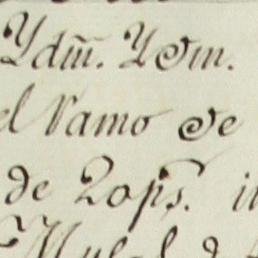 Ydm̃. Ydm.
el Ramo de
de 20 p.s